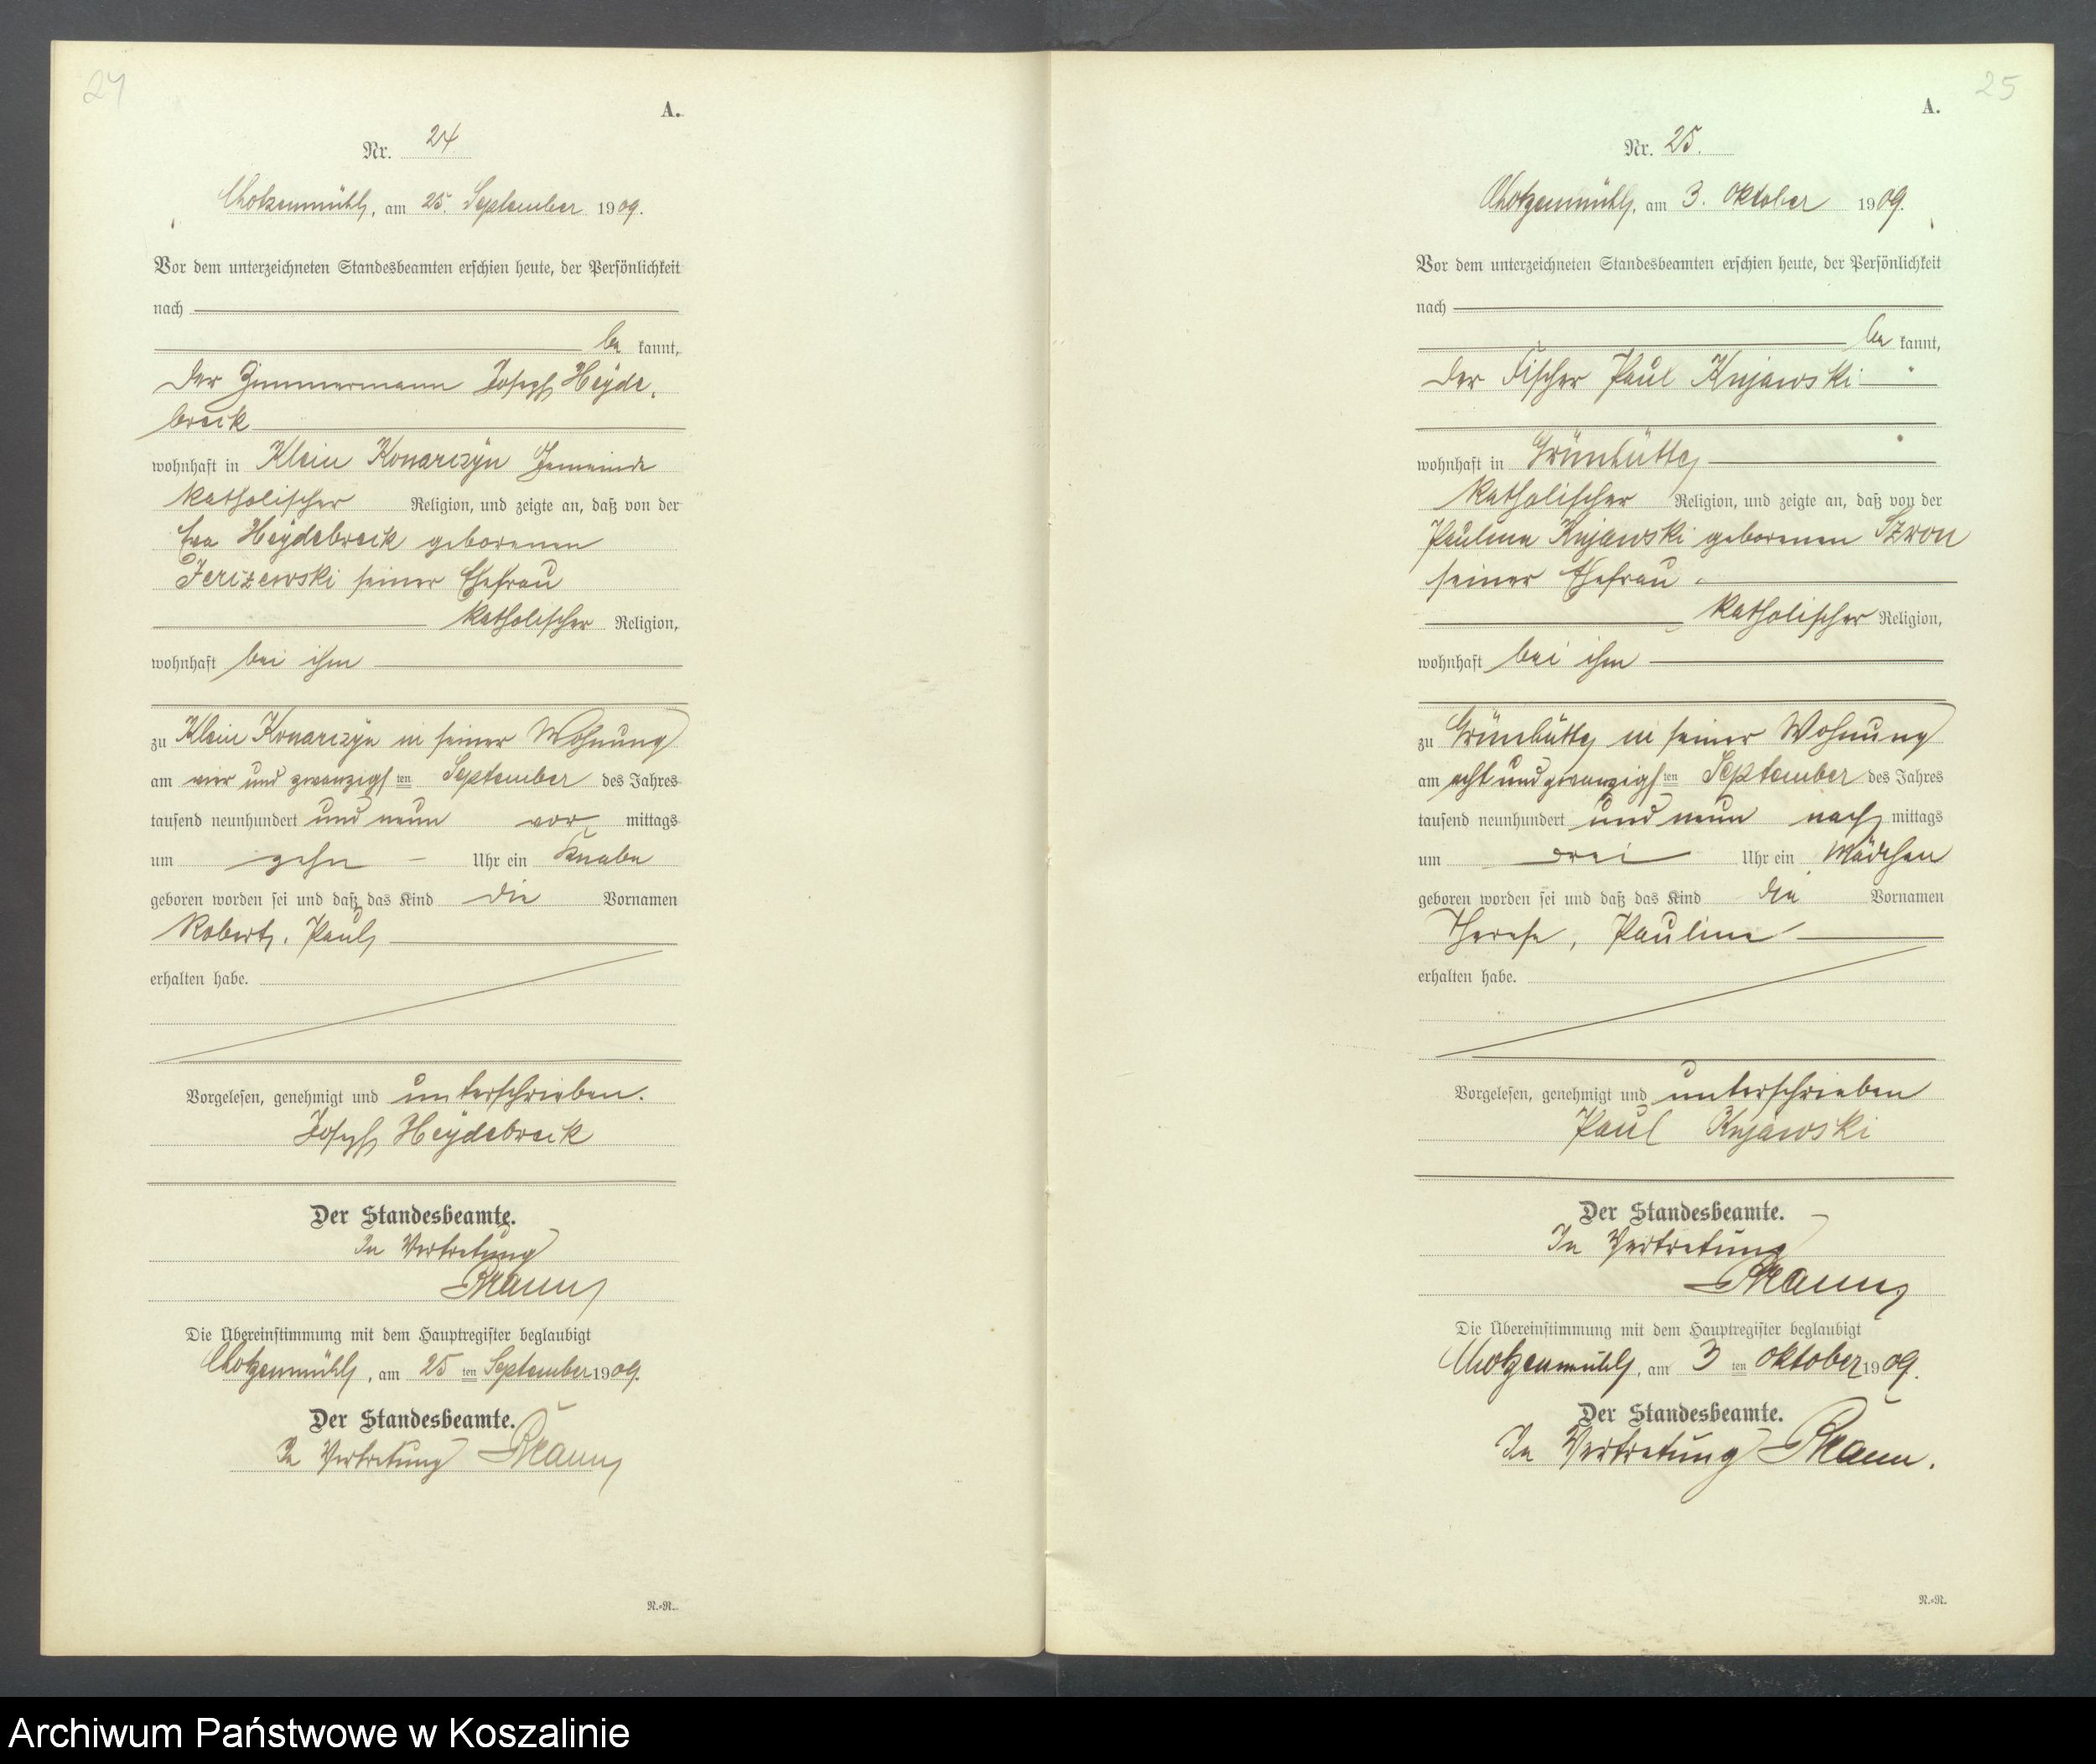 24
A.
Nr. 24
Chotzenmühl, am 25. September 1909.
Vor dem unterzeichneten Standesbeamten erschien heute, der Persönlichkeit
nach
be kannt,
der Zimmermann Joseph Heyde-
breck
wohnhaft in Klein Konarczyn Gemeinde
katholischer Religion, und zeigte an, daß von der
Eva Heydebreck geborenen
Jerizewski seiner Ehefrau
katholischer Religion,
wohnhaft bei ihm
zu Klein Konarczyn in seiner Wohnung
am vier und zwanzigsten September des Jahres
tausend neunhundert und neun vor mittags
um zehn Uhr ein Knabe
geboren worden sei und daß das Kind die Vornamen
Robert, Paul
erhalten habe.
Vorgelesen, genehmigt und unterschrieben.
Joseph Heydebreck
Der Standesbeamte.
In Vertretung
Die Übereinstimmung mit dem Hauptregister beglaubigt
Chotzenmühl, am 25 ten September 1909.
Der Standesbeamte.
In Vertretung
N.-R.
25
A.
Nr. 25.
Chotzenmühl, am 3. Oktober 1909.
Vor dem unterzeichneten Standesbeamten erschien heute, der Persönlichkeit
nach
be kannt,
der Fischer Paul Kujawski
wohnhaft in Grünhütte
katholischer Religion, und zeigte an, daß von der
Pauline Kujawski geborenen Szwon
seiner Ehefrau
katholischer Religion,
wohnhaft bei ihm
zu Grünhütte in seiner Wohnung
am acht und zwanzigsten September des Jahres
tausend neunhundert und neun nach mittags
um drei Uhr ein Mädchen
geboren worden sei und daß das Kind die Vornamen
Therese, Pauline
erhalten habe.
Vorgelesen, genehmigt und unterschrieben
Paul Kujawski
Der Standesbeamte.
In Vertretung
Die Übereinstimmung mit dem Hauptregister beglaubigt
Chotzenmühl, am 3 ten Oktober 1909.
Der Standesbeamte.
In Vertretung
N.-R.
Archiwum Państwowe w Koszalinie